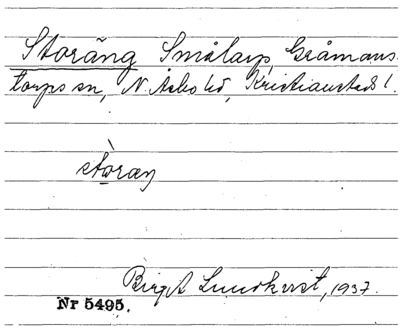 Storäng Smålarp, Gråmans-
torps sn, N. Åsbo hd, Kristianstads l.
stòraŋ
Birgit Lundkvist, 1937.
Nr 5495.